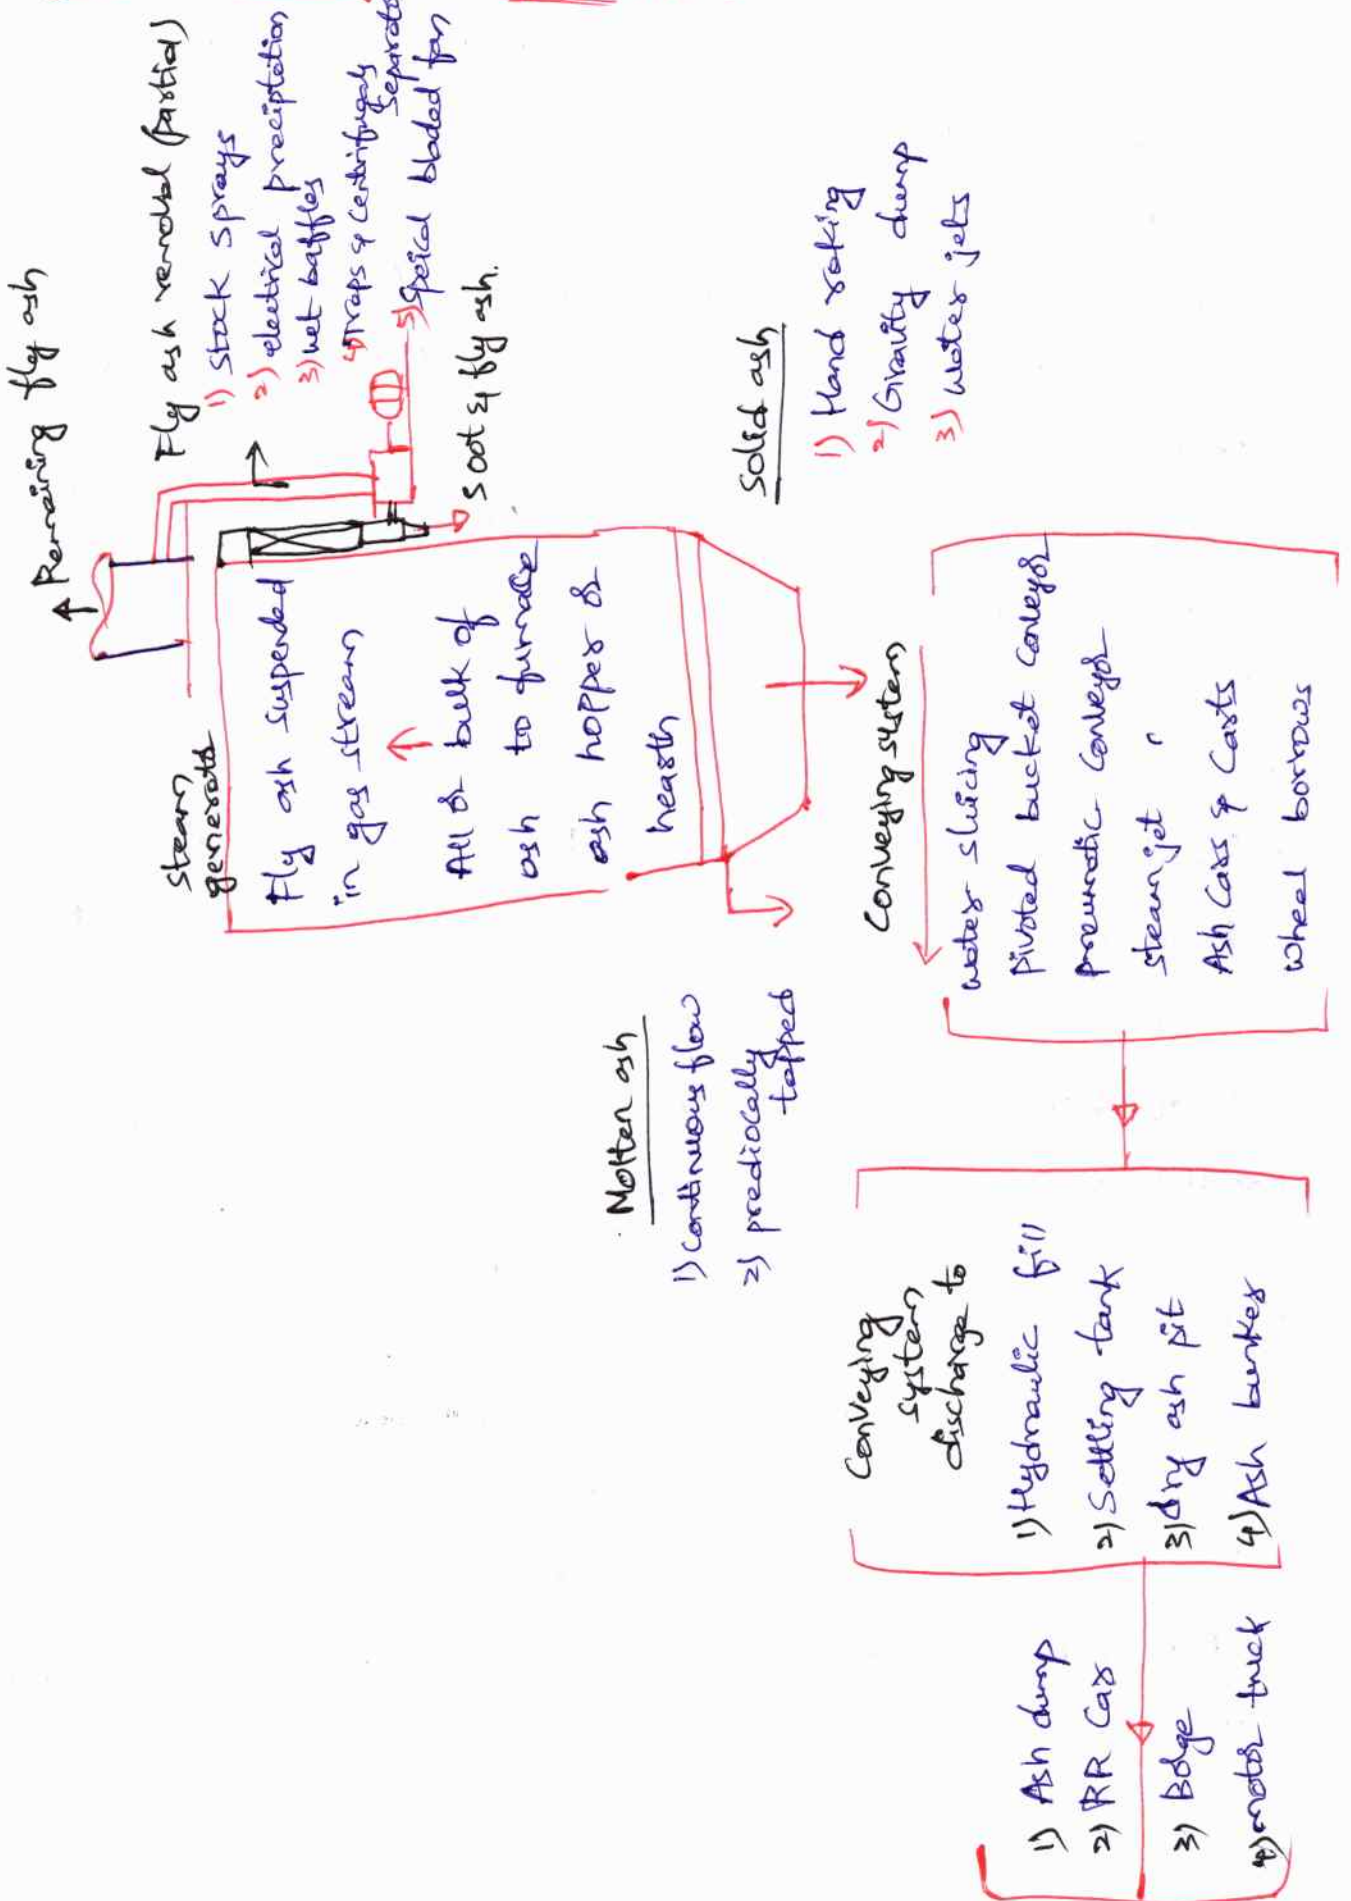 Remaining fly ash
Fly ash removal (partial)
1) Stack sprays
2) electrical preciptation
3) wet baffles
4) Traps & Centrifugals
separato
5) Speical bladed fan
Soot & fly ash.
Steam
generator
Fly ash suspended
in gas stream
All or bulk of
ash to furnace
ash hopper or
hearth
Solid ash
1) Hand raking
2) Gravity dump
3) water jets
Molten ash
1) Continuous flow
2) prediocally
tapped
Conveying system
water sluicing
Pivoted bucket conveyor
pneumatic conveyor
steam jet "
Ash Cars & Carts
wheel borrows
Conveying
system
discharge to
1) Hydraulic fill
2) Settling tank
3) dry ash pit
4) Ash bunker
1) Ash dump
2) RR Car
3) Barge
4) motor truck